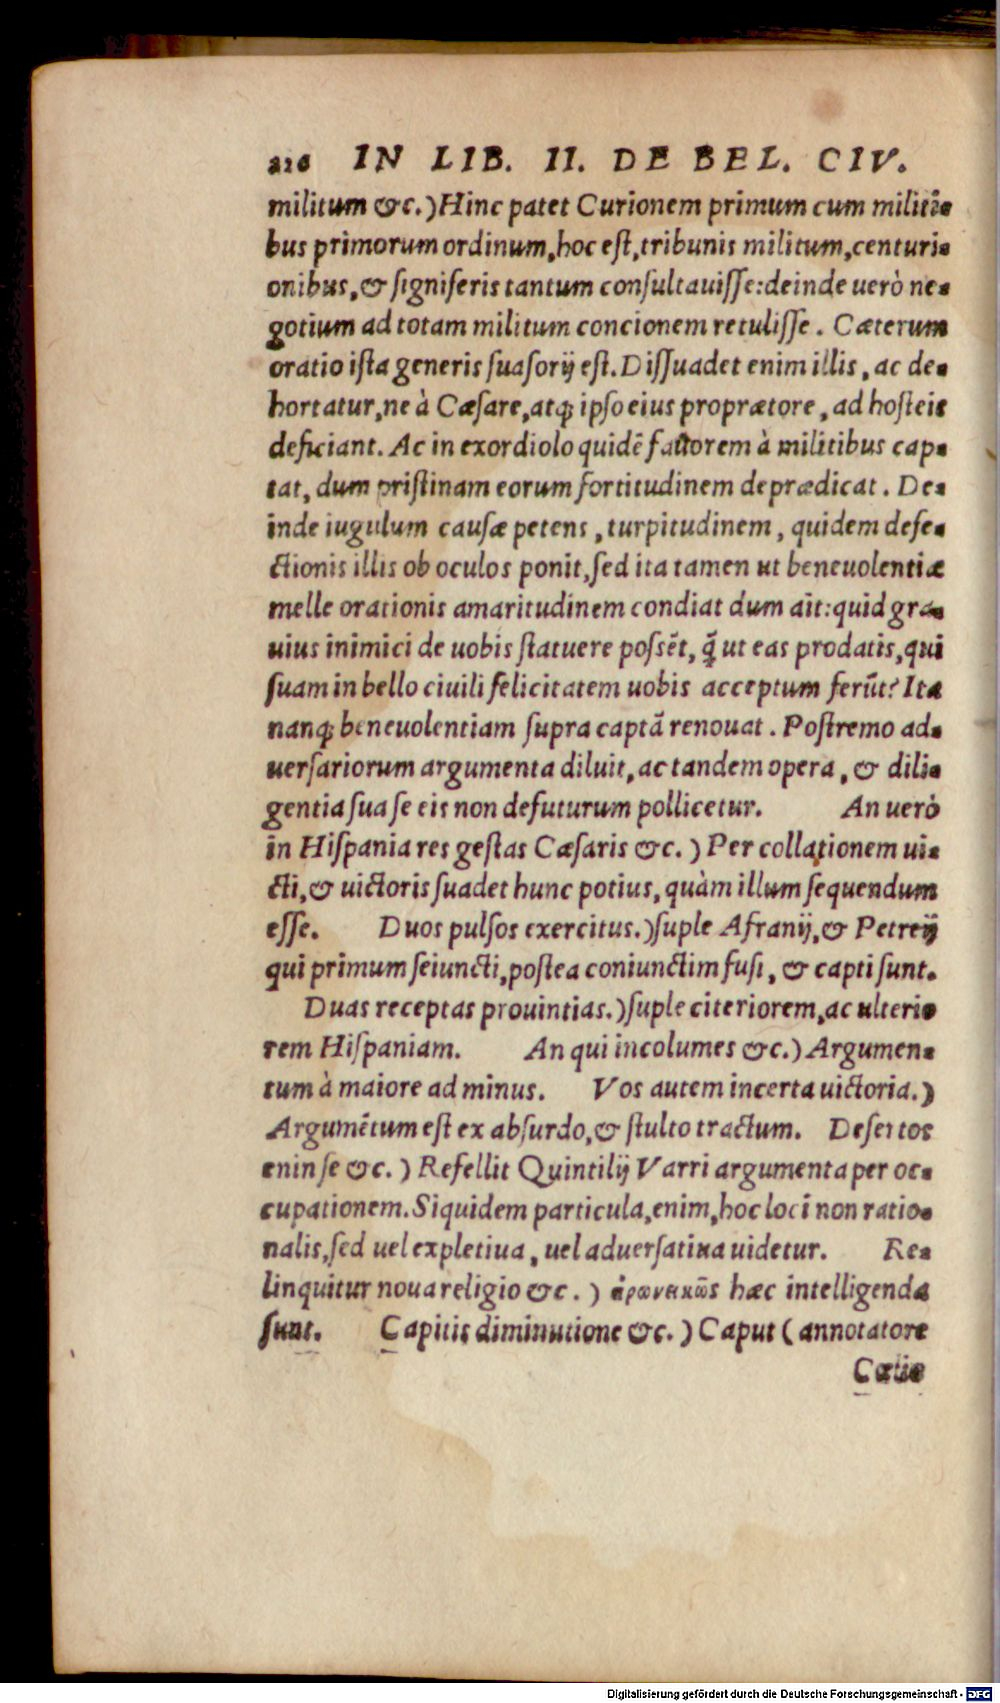 226 IN LIB. II. DE BEL. CIV.
militum &c.) Hinc patet Curionem primum cum militi-
bus primorum ordinum, hoc est, tribunis militum, centuri-
onibus, & signiferis tantum consultauisse: deinde uerò ne-
gotium ad totam militum concionem retulisse. Cæterum
oratio ista generis suasorij est. Dissuadet enim illis, ac de-
hortatur, ne à Cæsare, atq; ipso eius proprætore, ad hosteis
deficiant. Ac in exordiolo quidē fauorem à militibus cap-
tat, dum pristinam eorum fortitudinem deprædicat. De-
inde iugulum causæ petens, turpitudinem, quidem defe-
ctionis illis ob oculos ponit, sed ita tamen ut beneuolentiæ
melle orationis amaritudinem condiat dum ait: quid gra-
uius inimici de uobis statuere possēt, q̃ ut eas prodatis, qui
suam in bello ciuili felicitatem uobis acceptum ferūt? Ita
nanq; beneuolentiam supra captā renouat. Postremo ad-
uersariorum argumenta diluit, ac tandem opera, & dili-
gentia sua se eis non defuturum pollicetur. An uerò
in Hispania res gestas Cæsaris &c.) Per collationem ui-
cti, & uictoris suadet hunc potius, quàm illum sequendum
esse. Duos pulsos exercitus.) suple Afranij, & Petreij
qui primum seiuncti, postea coniunctim fusi, & capti sunt.
Duas receptas prouintias.) suple citeriorem, ac ulterio
rem Hispaniam. An qui incolumes &c.) Argumen-
tum à maiore ad minus. Vos autem incerta uictoria.)
Argumētum est ex absurdo, & stulto tractum. Desertos
enin se &c.) Refellit Quintilij Varri argumenta per oc-
cupationem. Siquidem particula, enim, hoc loci non ratio-
nalis, sed uel expletiua, uel aduersatiua uidetur. Re-
linquitur noua religio &c.) εἰρωνικῶς hæc intelligenda
sunt. Capitis diminutione &c.) Caput (annotatore
Cælio
Digitalisierung gefördert durch die Deutsche Forschungsgemeinschaft - DFG